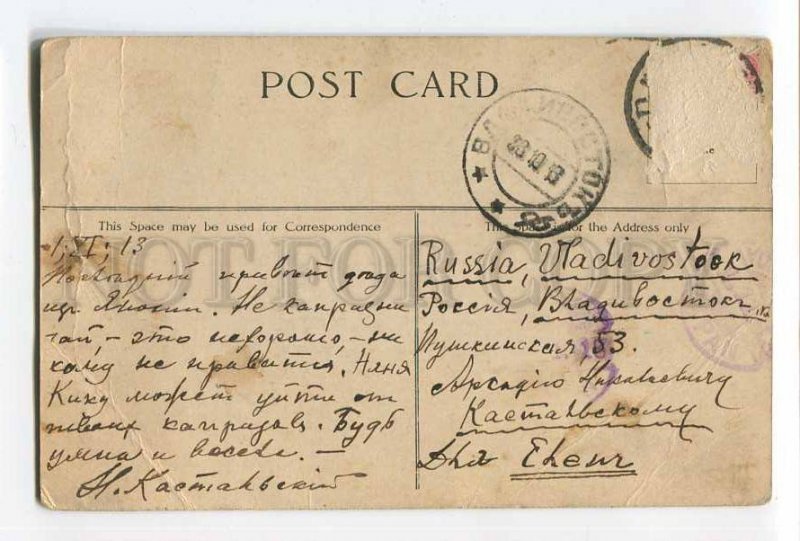 POST CARD
ВЛАДИВОСТОКЪ
This Space may be used for Correspondence
This Space is for the Address only
1; XI; 13
Последній привѣт
из Японіи. Не капризни
чай, - это нехорошо, - ни
кому не нравится. Няня
Кику может уйти от
твоих капризов. Будь
умна и весела. -
Н. Кастальскій
Russia, Vladivostock
Россія, Владивосток
Пушкинская 53.
Аркадію Николаевичу
Кастальскому
Для Елены
NOT FOR COPY